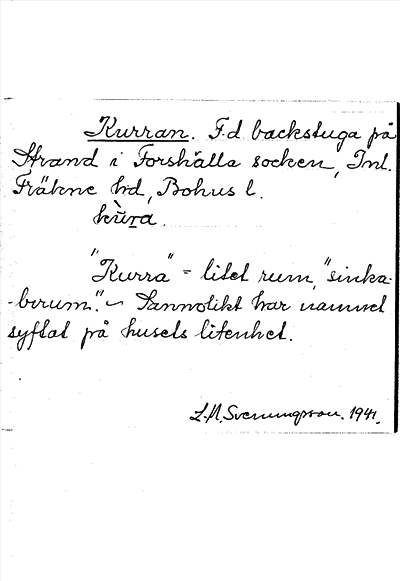 Kurran. F.d. backstuga på
Strand i Forshälla socken, Inl.
Fräkne hd, Bohus l.
kùra.
"Kurra" = litet rum, "sinka-
-birum." ~ Sannolikt har namnet
syftat på husets litenhet.
L.M. Svenungsson. 1941.